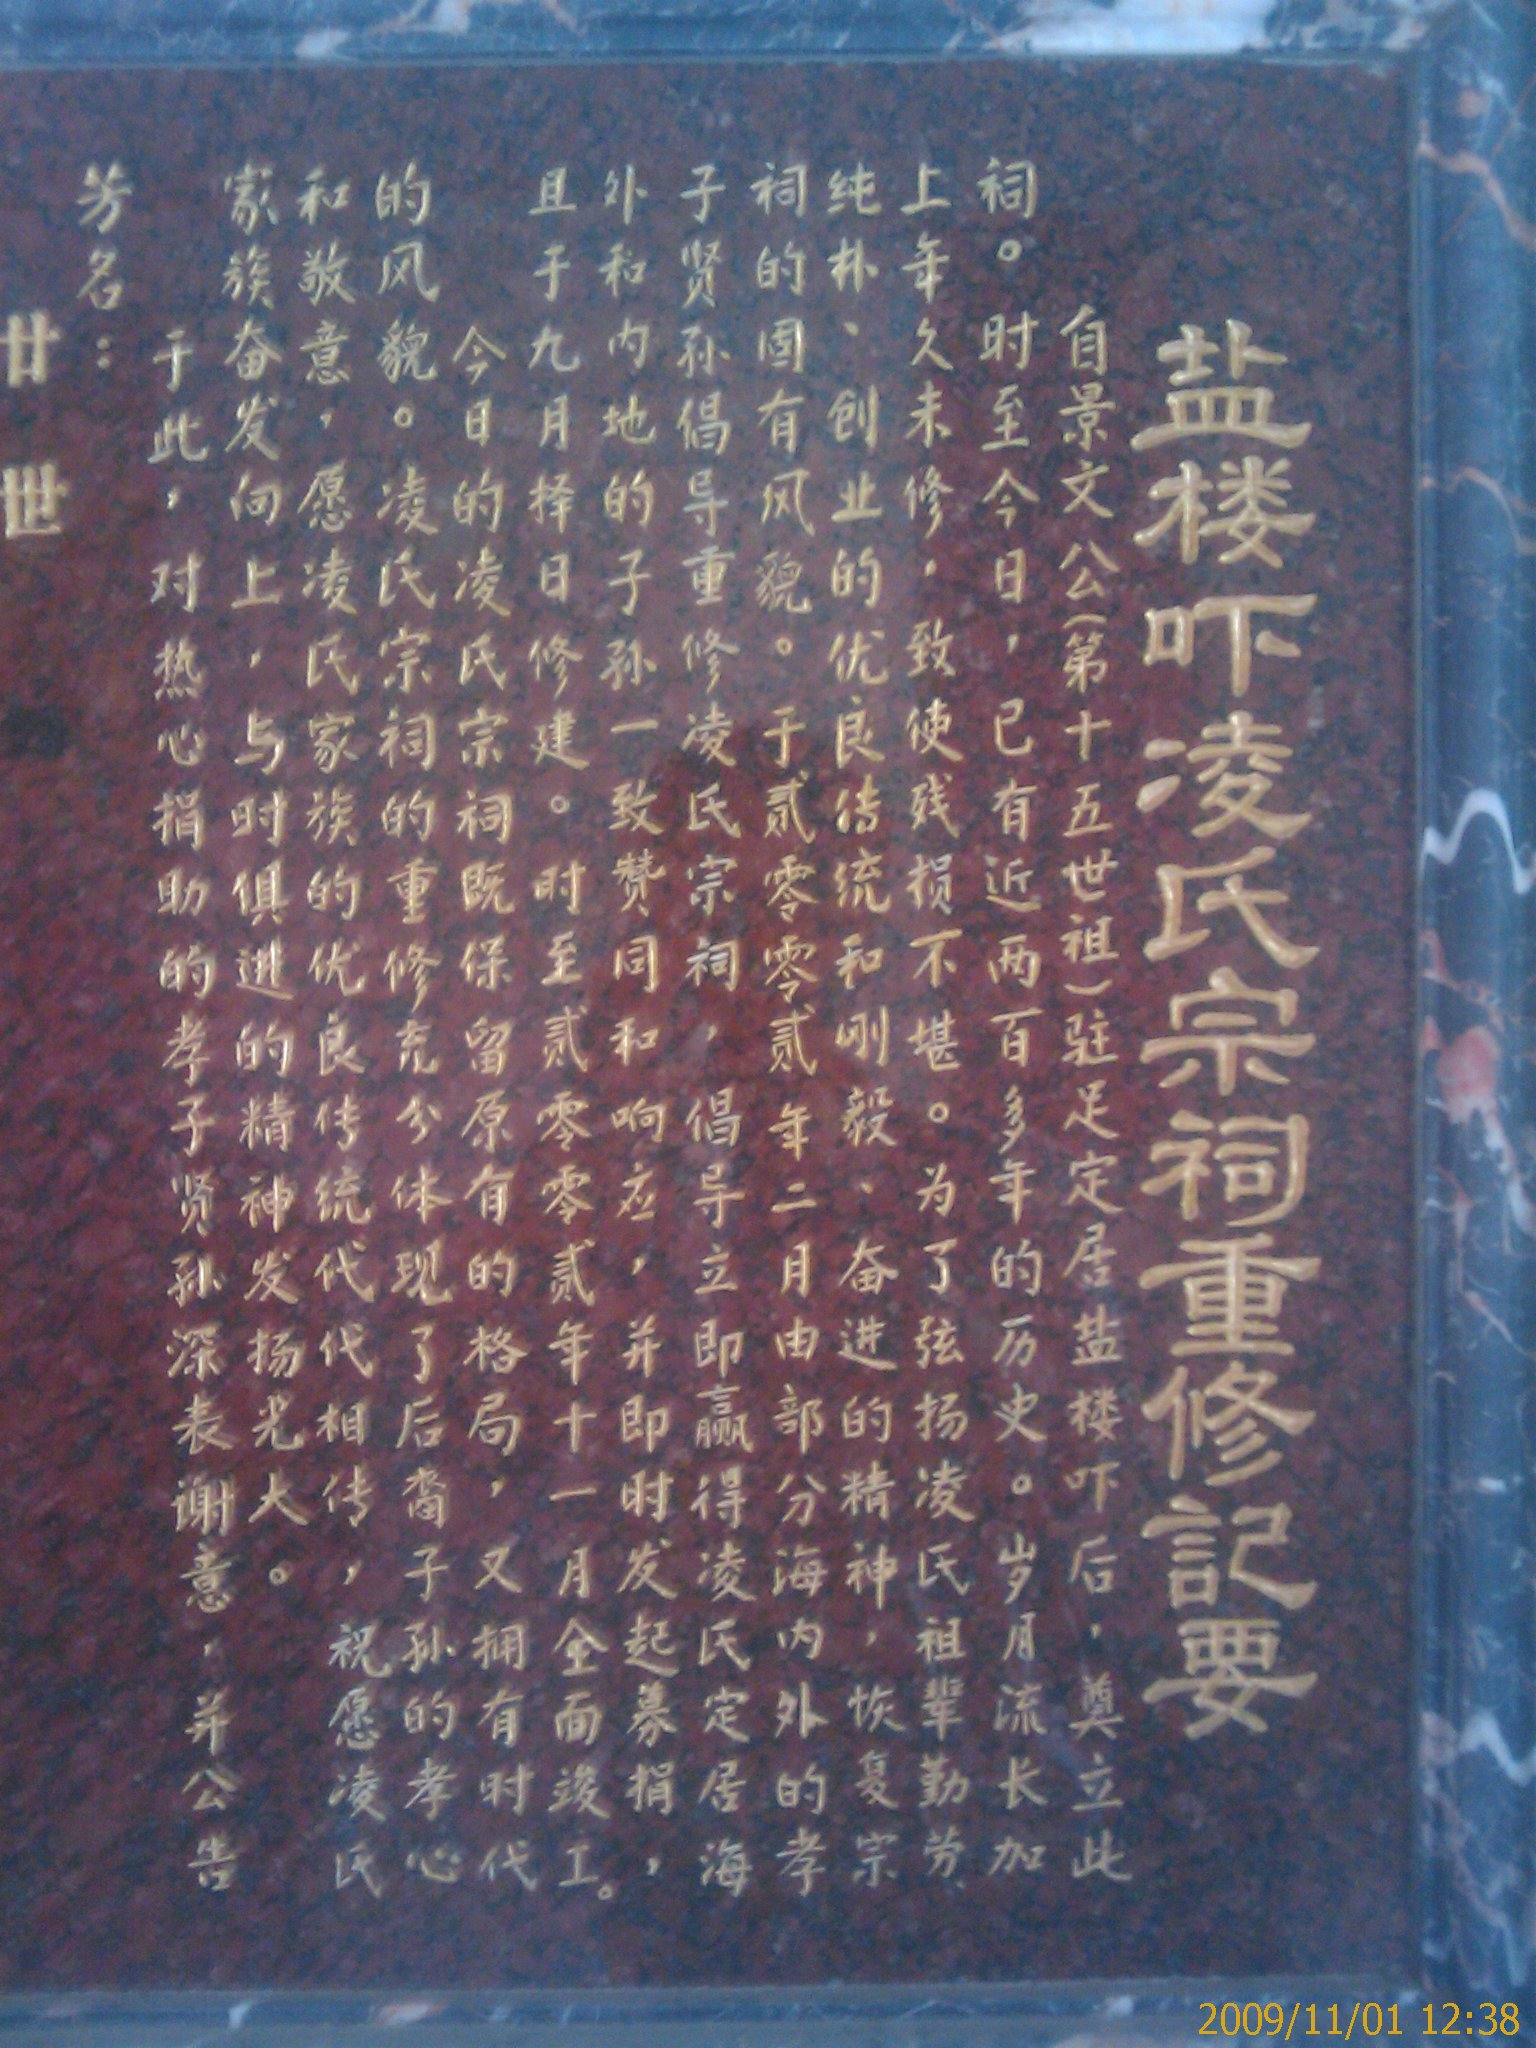 盐楼吓凌氏宗祠重修記要
自景文公(第十五世祖)驻足定居盐楼吓后，奠立此
祠。时至今日，已有近两百多年的历史。岁月流长加
上年久未修，致使残损不堪。为了弦扬凌氏祖辈勤劳、
纯朴、创业的优良传统和刚毅、奋进的精神，恢复宗
祠的固有风貌。于贰零零贰年二月由部分海内外的孝
子贤孙倡导重修凌氏宗祠，倡导立即赢得凌氏定居海
外和内地的子孙一致赞同和响应，并即时发起募捐，
且于九月择日修建。时至贰零零贰年十一月全面竣工。
今日的凌氏宗祠既保留原有的格局，又拥有时代
的风貌。凌氏宗祠的重修充分体现了后裔子孙的孝心
和敬意，愿凌氏家族的优良传统代代相传，祝愿凌氏
家族奋发向上，与时俱进的精神发扬光大。
于此，对热心捐助的孝子贤孙深表谢意，并公告
芳名：
廿世
2009/11/01 12:38